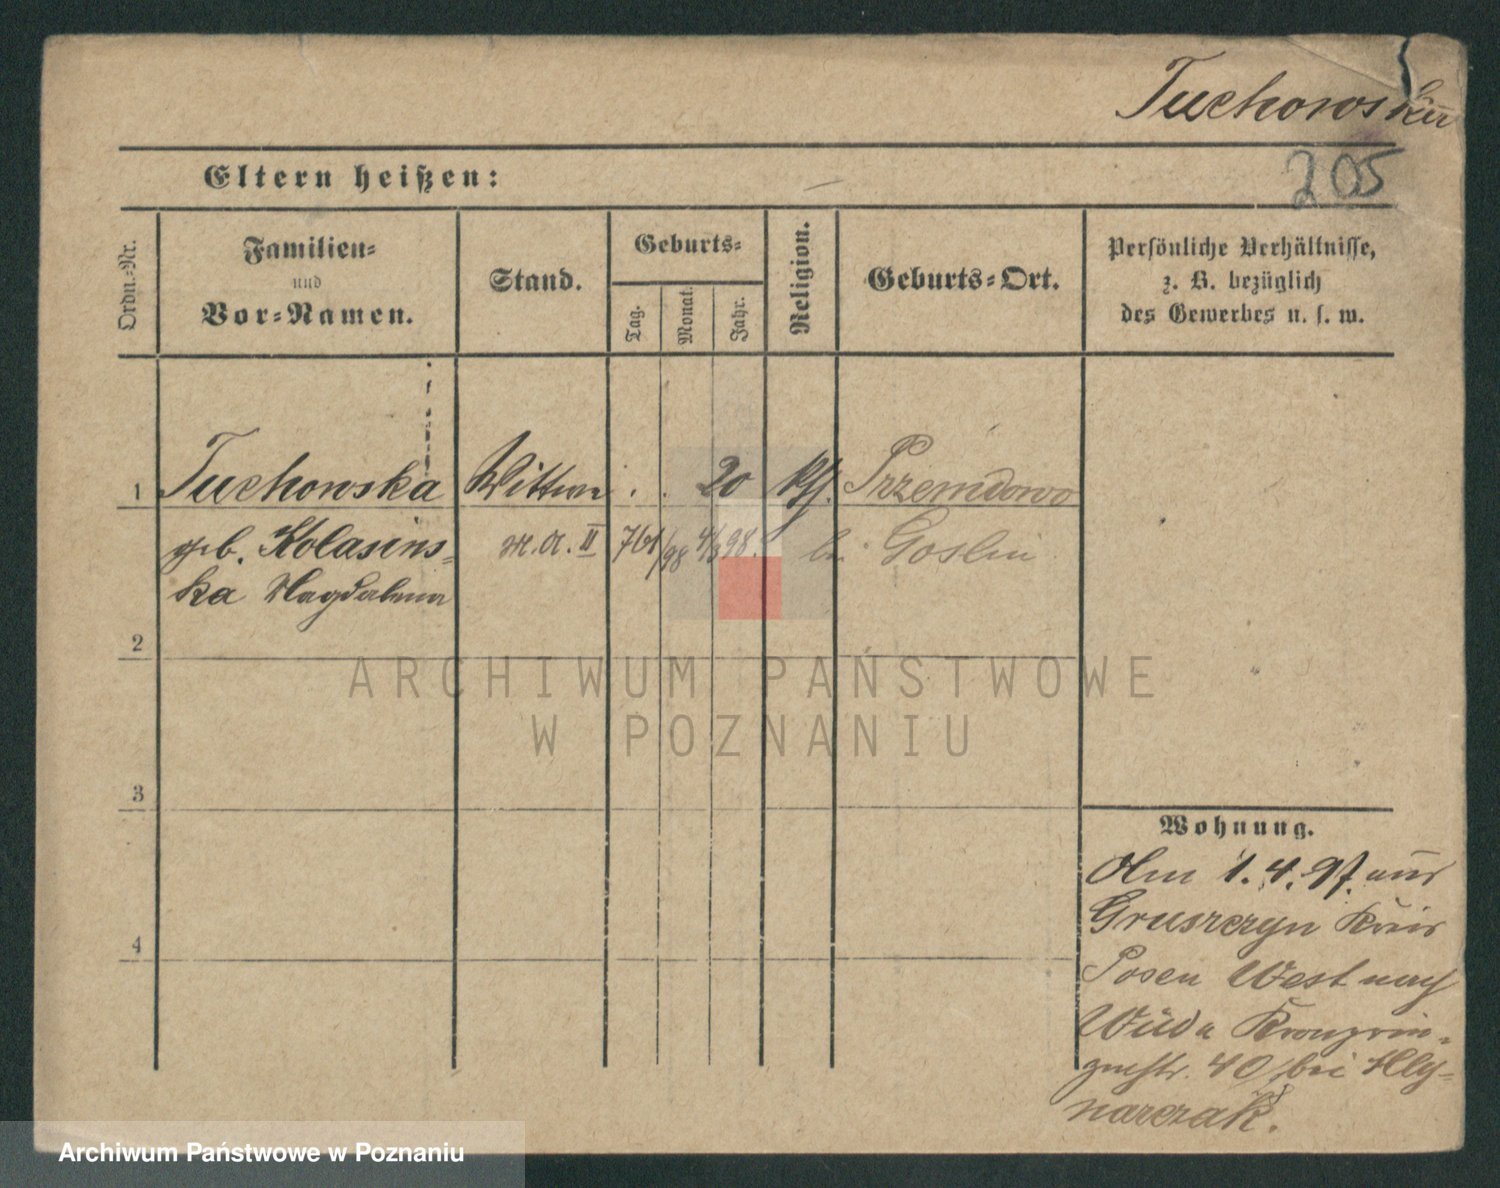 Tuchowska
205
Eltern heißen:
Ordn.-Nr.
Familien-
und
Vor-Namen.
Stand.
Geburts-
Tag.
Monat.
Jahr.
Religion.
Geburts-Ort.
Persönliche Verhältnisse,
z. B. bezüglich
des Gewerbes u. s. w.
1 Tuchowska Wittwe . . 20 kth. Przemdowo
geb. Kolasins- M. A. II 761/98 4/3 98. bei Goslin
ka Magdalena
2
3
4
Wohnung.
Am 1. 4. 97. aus
Gruszczyn Kreis
Posen West nach
Wilda Kronprin-
zenstr. 40 bei Mly-
narczak.
ARCHIWUM PAŃSTWOWE
W POZNANIU
Archiwum Państwowe w Poznaniu